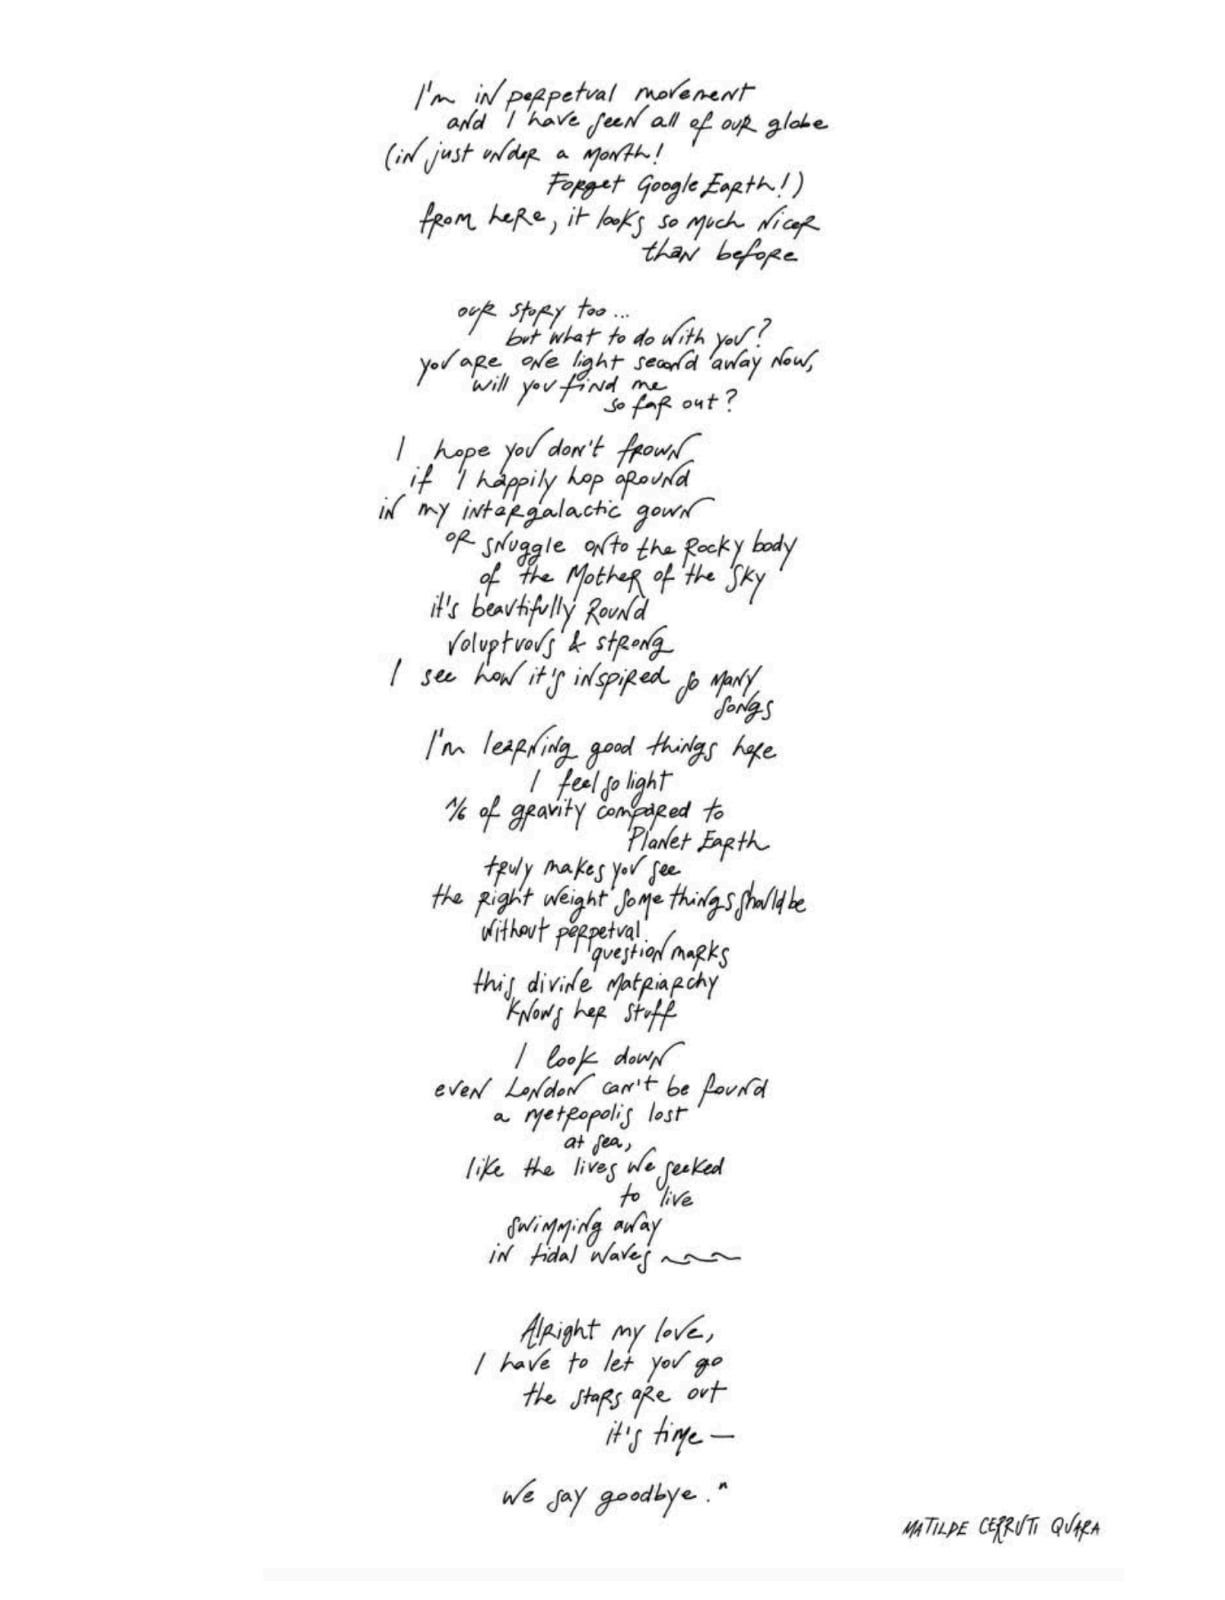 I'm in perpetual movement
and I have seen all of our globe
(in just under a month!
Forget Google Earth!)
from here, it looks so much nicer
than before
our story too...
but what to do with you?
you are one light second away now,
will you find me
so far out?
I hope you don't frown
if I happily hop around
in my intergalactic gown
or snuggle onto the Rocky body
of the Mother of the Sky
it's beautifully Round
voluptuous & strong
I see how it's inspired so many
songs
I'm learning good things here
I feel so light
1/6 of gravity compared to
Planet Earth
truly makes you see
the right weight some things should be
without perpetual
question marks
this divine Matriarchy
knows her stuff
I look down
even London can't be found
a metropolis lost
at sea,
like the lives we seeked
to live
swimming away
in tidal waves ~~~
Alright my love,
I have to let you go
the stars are out
it's time —
We say goodbye."
MATILDE CERRUTI QUARA